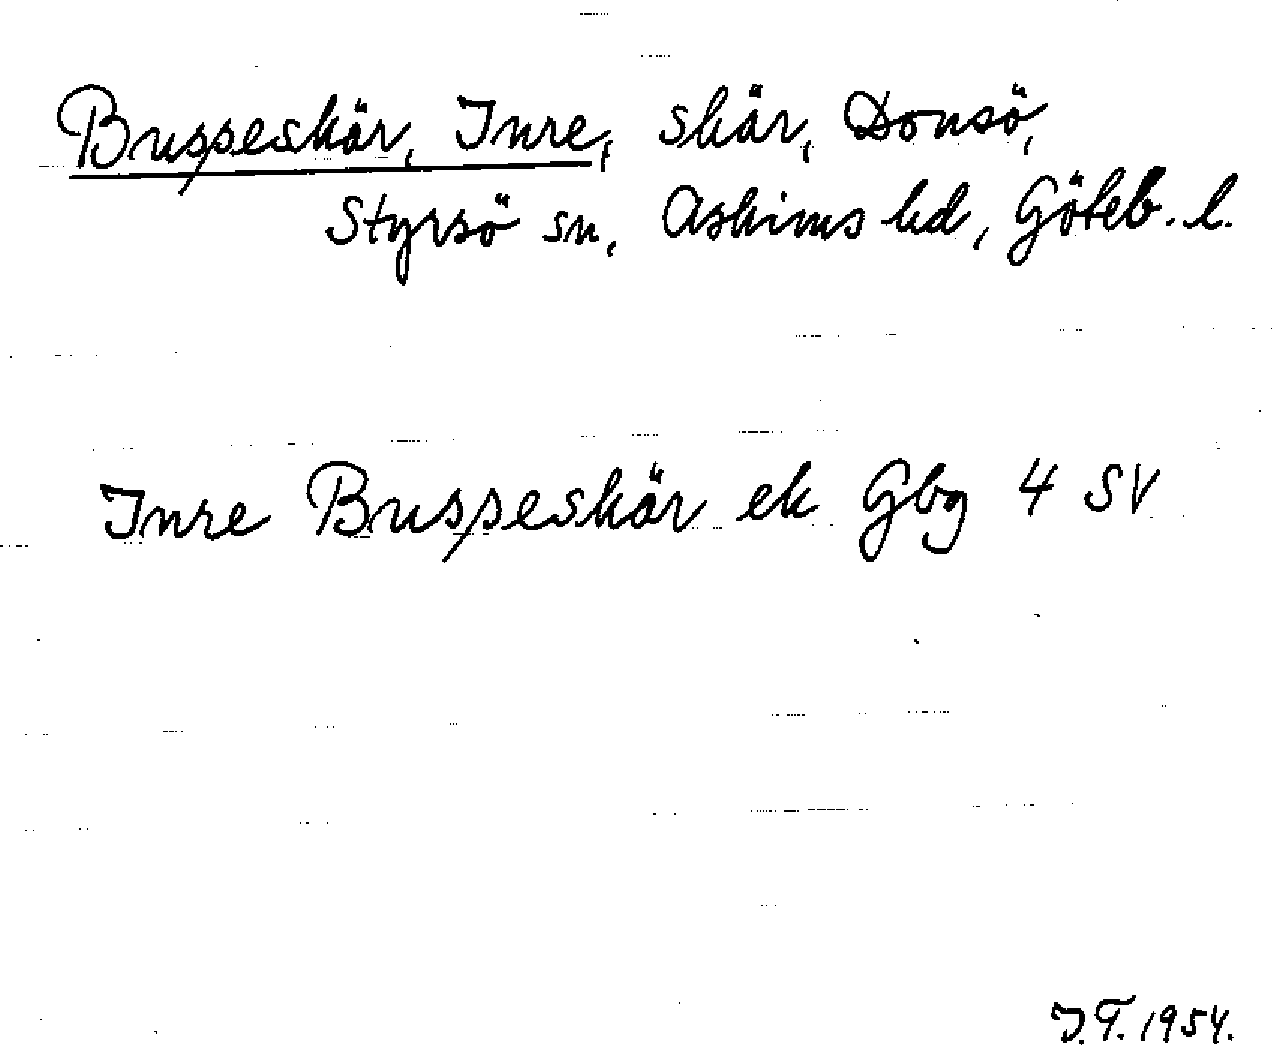 Busseskär, Inre, skär, Donsö,
Styrsö sn, Askims hd, Göteb. l.
Inre Busseskär ek Gbg 4 SV
J.T. 1954.